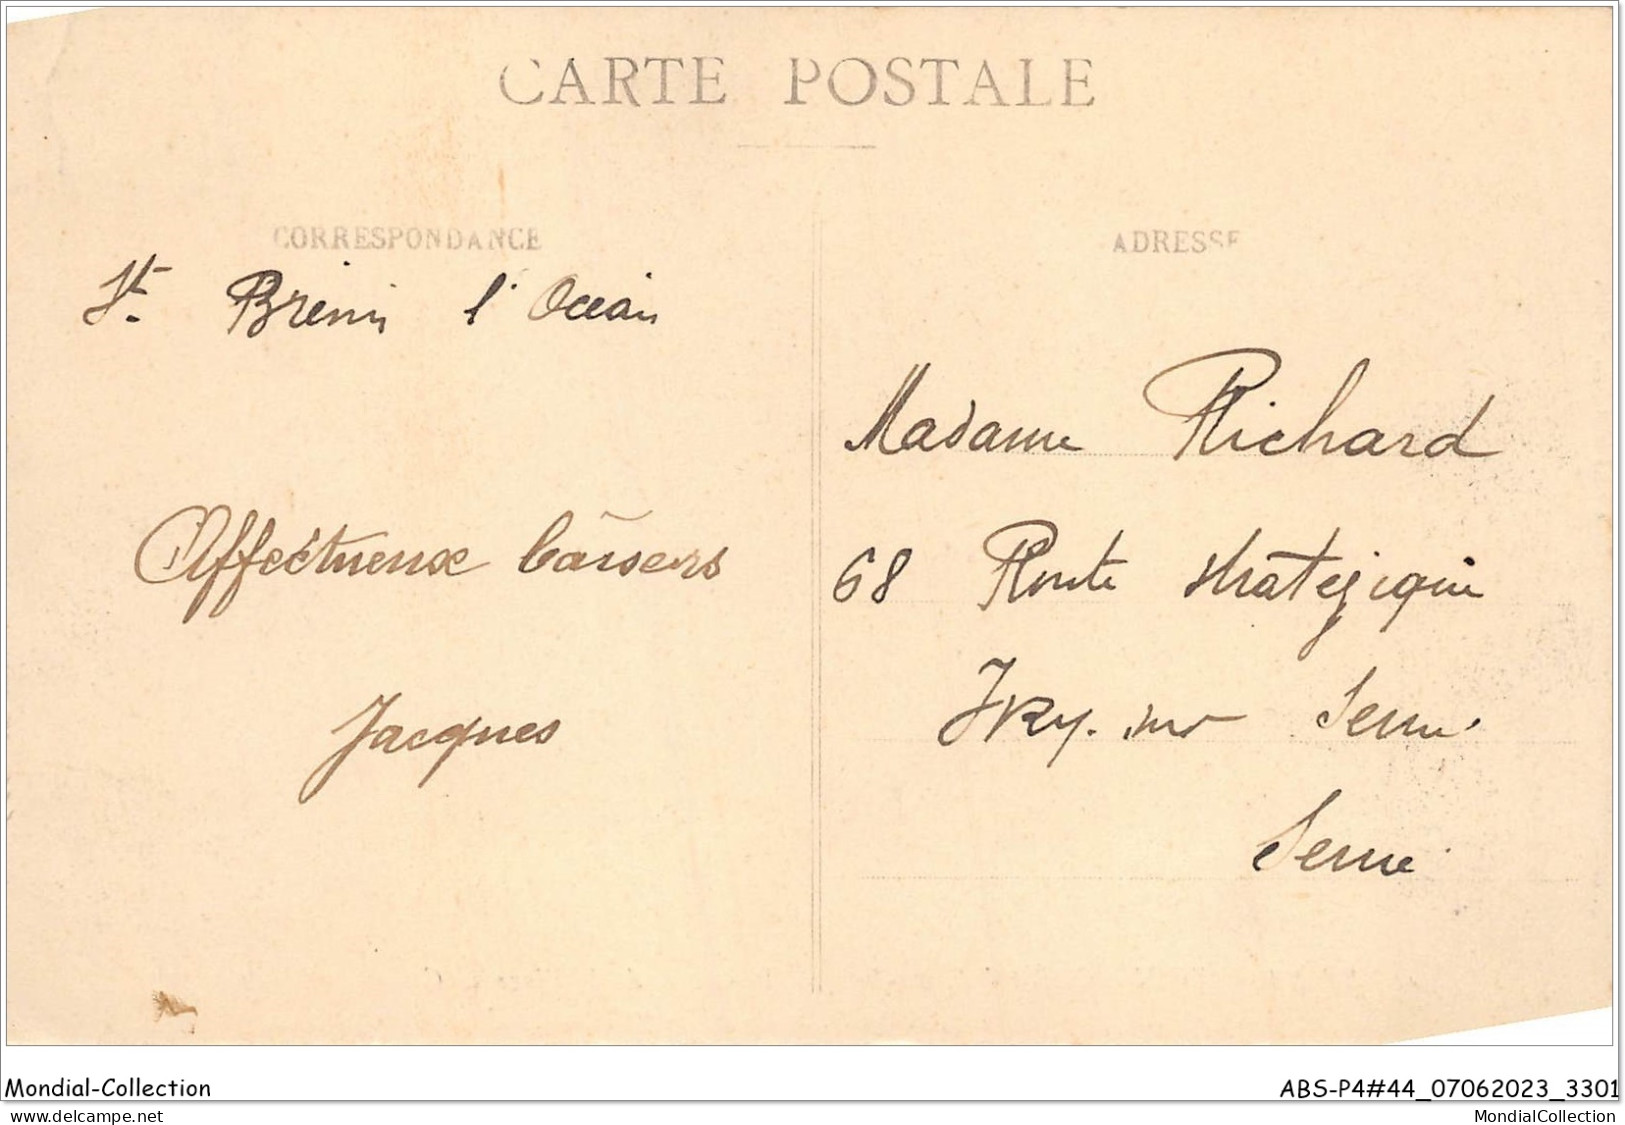 CARTE POSTALE
CORRESPONDANCE
ADRESSE
St. Brévin l'Océan
Madame Richard
Affectueux baisers
68 Route stratégique
Jacques
Ivry-sur Seine
Seine
Mondial-Collection
ABS-P4#44_07062023_3301
www.delcampe.net
MondialCollection